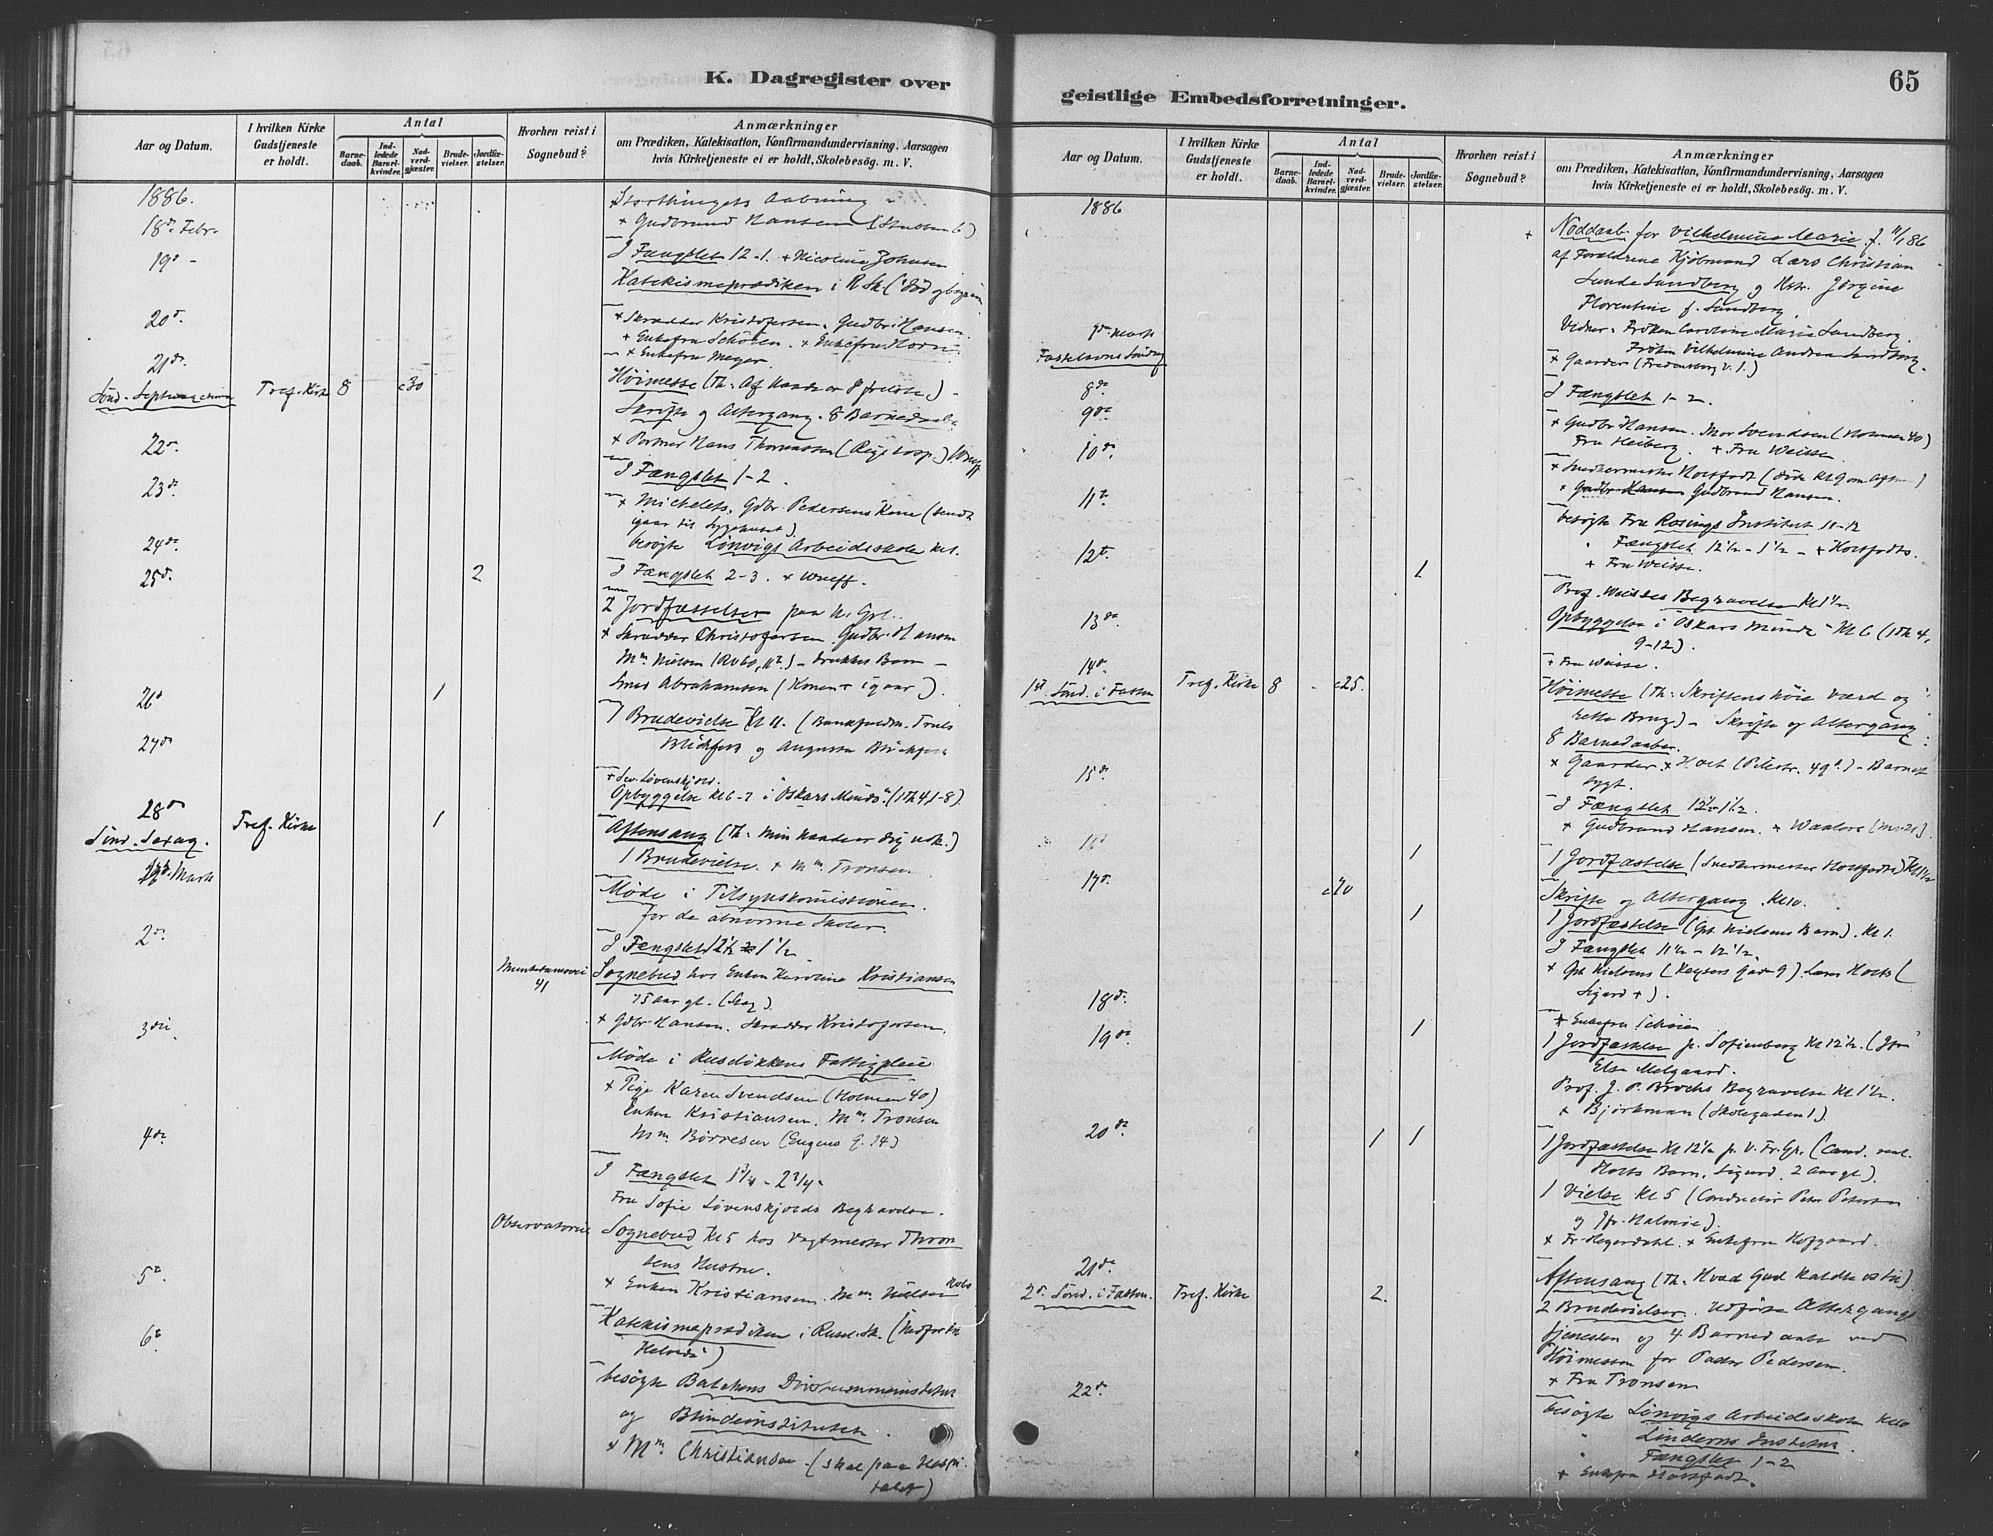 K. Dagregister over
Aar og Datum.
I hvilken Kirke
Gudstjeneste
er holdt.
Antal
Barne-
daab.
Ind-
ledede
Barsel-
kvinder.
Nad-
verd-
gjæster.
Brude-
vielser.
Jordfæ-
stelser.
Hvorhen reist i
Sognebud?
Anmærkninger
om Prædiken, Katekisation, Konfirmandundervisning, Aarsagen
hvis Kirketjeneste ei er holdt, Skolebesög. m. V.
1886.
Storthingets Aabning
18de Febr.
+ Gudbrand Hansen
19de
I Fængslet 12-1. + Nicoline Johnsen
Katekismeprædiken i R. Sk.
20de
+ Skrædder Kristofersen. Gudbr. Hansen
+ Enkefru Schöien. + Enkefru
21de
+ Enkefru Meyer
Sönd. Septuagesima Tref. Kirke 8 c30
Höimesse (Th: Af Naade er I frelste)
Skrifte og Altergang. 8 Barnedaab.
22de
+ Portner Hans Thomassen (Rigshosp.)
I Fængslet 1-2.
23de
+ Michelets, Gdbr. Pedersens Kone (sendt
igaar til Sygehuset)
24de
besögte Linvigs Arbeidsskole kl.
25de 2
I Fængslet 2-3. + Wulff.
2 Jordfæstelser paa
+ Skrædder Christofersen Gudbr. Hansen
Mm. Nielsen
Smed Abrahamsen (Konen + igaar).
26de 1
1 Brudevielse Kl 11. (Bankfuldm. Truls
og Augusta
27de
+ Sev. Løvenskjold.
Opbyggelse kl 6-7 i "Oskars Minde" (1 Th 4, 1-8)
28de
Sönd. Sexag. Tref. Kirke 1
Aftensang (Th: Min Naade er dig nok.)
1 Brudevielse. + Mm Tronsen.
Marts
Möde i Tilsynskomissionen
for de abnorme Skoler.
2de
I Fængslet 12½ 1½
Munkedamsvei
41
Sognebud hos Enken Karoline Kristiansen
75 aar gl.
+ Gdbr. Hansen. Skrædder Kristofersen.
3die
Möde i Ruselökkens Fattigpleie
+ Pige Karen Svendsen (Holmen 40)
Enken Kristiansen. Mm Tronsen
Mm Börresen (Eugens G. 14)
4de
I Fængslet 1¾ - 2¾
Fru Sofie Løvenskjolds Begravelse.
Observatoriet
Sognebud Kl 5 hos Vagtmester Thron
sens Hustru.
5te
+ Enken Kristiansen. Mm. Nielsen
Katekismeprædiken i Rusel. Sk. (Nedfor til
Helvede")
6te
besögte Balchens Dövstummeinstitut
og Blindeinstitutet.
+ Mm. Christiansen (skal paa Hospi
talet)
geistlige Embedsforretninger.
65
Aar og Datum.
I hvilken Kirke
Gudstjeneste
er holdt.
Antal
Barne-
daab.
Ind-
ledede
Barsel-
kvinder.
Nad-
verd-
gjæster.
Brude-
vielser.
Jordfæ-
stelser.
Hvorhen reist i
Sognebud?
Anmærkninger
om Prædiken, Katekisation, Konfirmandundervisning, Aarsagen
hvis Kirketjeneste ei er holdt, Skolebesög. m. V.
1886
+ Nöddaab for Vilhelmine Marie f. 11/1 86
af Forældrene Kjöbmand Lars Christian
Sunde Sundberg og Hstr. Jörgine
Florentine f. Sundberg.
7de Marts
Vidner: Fröken Caroline Marie Sundberg
Fastelavns Söndag
Fröken Vilhelmine Andrea Sundberg.
+ Gaarder (Fredensborg v. 1.)
8de
I Fængslet 1-2.
9de
+ Gudbr. Hansen. Mor Svendsen (Holmen 40)
Fru Heiberg. + Fru Weisse.
10de
+ Snedkermester Holsfodt (döde Kl 9 om Aften)
+ Gudbr Hansen Gudbrand Hansen.
11te
besögte Fru Rosings Institut 11-12
" Fængslet 12½ - 1½ - + Holsfodts.
12te 1
+ Fru Weisse.
Prof. Weisses Begravelse Kl 1½.
13de
Opbyggelse i "Oskars Minde" Kl 6 (1 Th 4,
9-12).
14de
+ Fru Weisse.
1ste Sönd. i Fasten Tref. Kirke 8 c25.
Höimesse (Th: Skriftens höie Værd og
rette Brug) - Skrifte og Altergang
8 Barnedaaber.
15de
+ Gaarder. + Holst (Pilestr. 49) - Barnet
sygt.
I Fængslet 12½ 1½.
+ Gudbrand Hansen. + Waalers
16de 1
1 Jordfæstelse (Snedkermester Holsfodts) Kl 1½
17de c20
Skrifte og Altergang. Kl 10.
1
1 Jordfæstelse (Gst. Nielsens Barn). Kl 1.
I Fængslet 11½ - 12½.
+ Gst Nielsens (Keysers Gade 9). Lærer Holts (
Sigurd +).
18de
+ Enkefru Schöien
19de 1
1 Jordfæstelse p. Sofienberg Kl 12½.
Else Melgaard.
Prof. J. P. Brochs Begravelse Kl 1½.
+ Björkman (Skolegaden 1.)
20de 1 1
1 Jordfæstelse Kl 12½ p. V. Fr. Gr. (Cand. real.
Holts Barn, Sigurd, 2 Aar gl).
1 Vielse Kl 5 (Conductör Peter Petersen
og Jfr. Halmöe).
+ Fr. Hegerdahl. + Enkefru Hofgaard.
21de
2. Sönd. i Fasten. Tref. Kirke 2.
Aftensang (Th: Hvad Gud kaldte os til)
2 Brudevielser. Udförte Altergangs
tjenesten og 4 Barnedaabe ved
Höimessen for Pastor Pedersen.
+ Fru Tronsen
22de
besögte Linvigs Arbeidsskole Kl 10
" Linderns Institut.
" Fængslet 1-2
+ Enkefru Holsfodt.